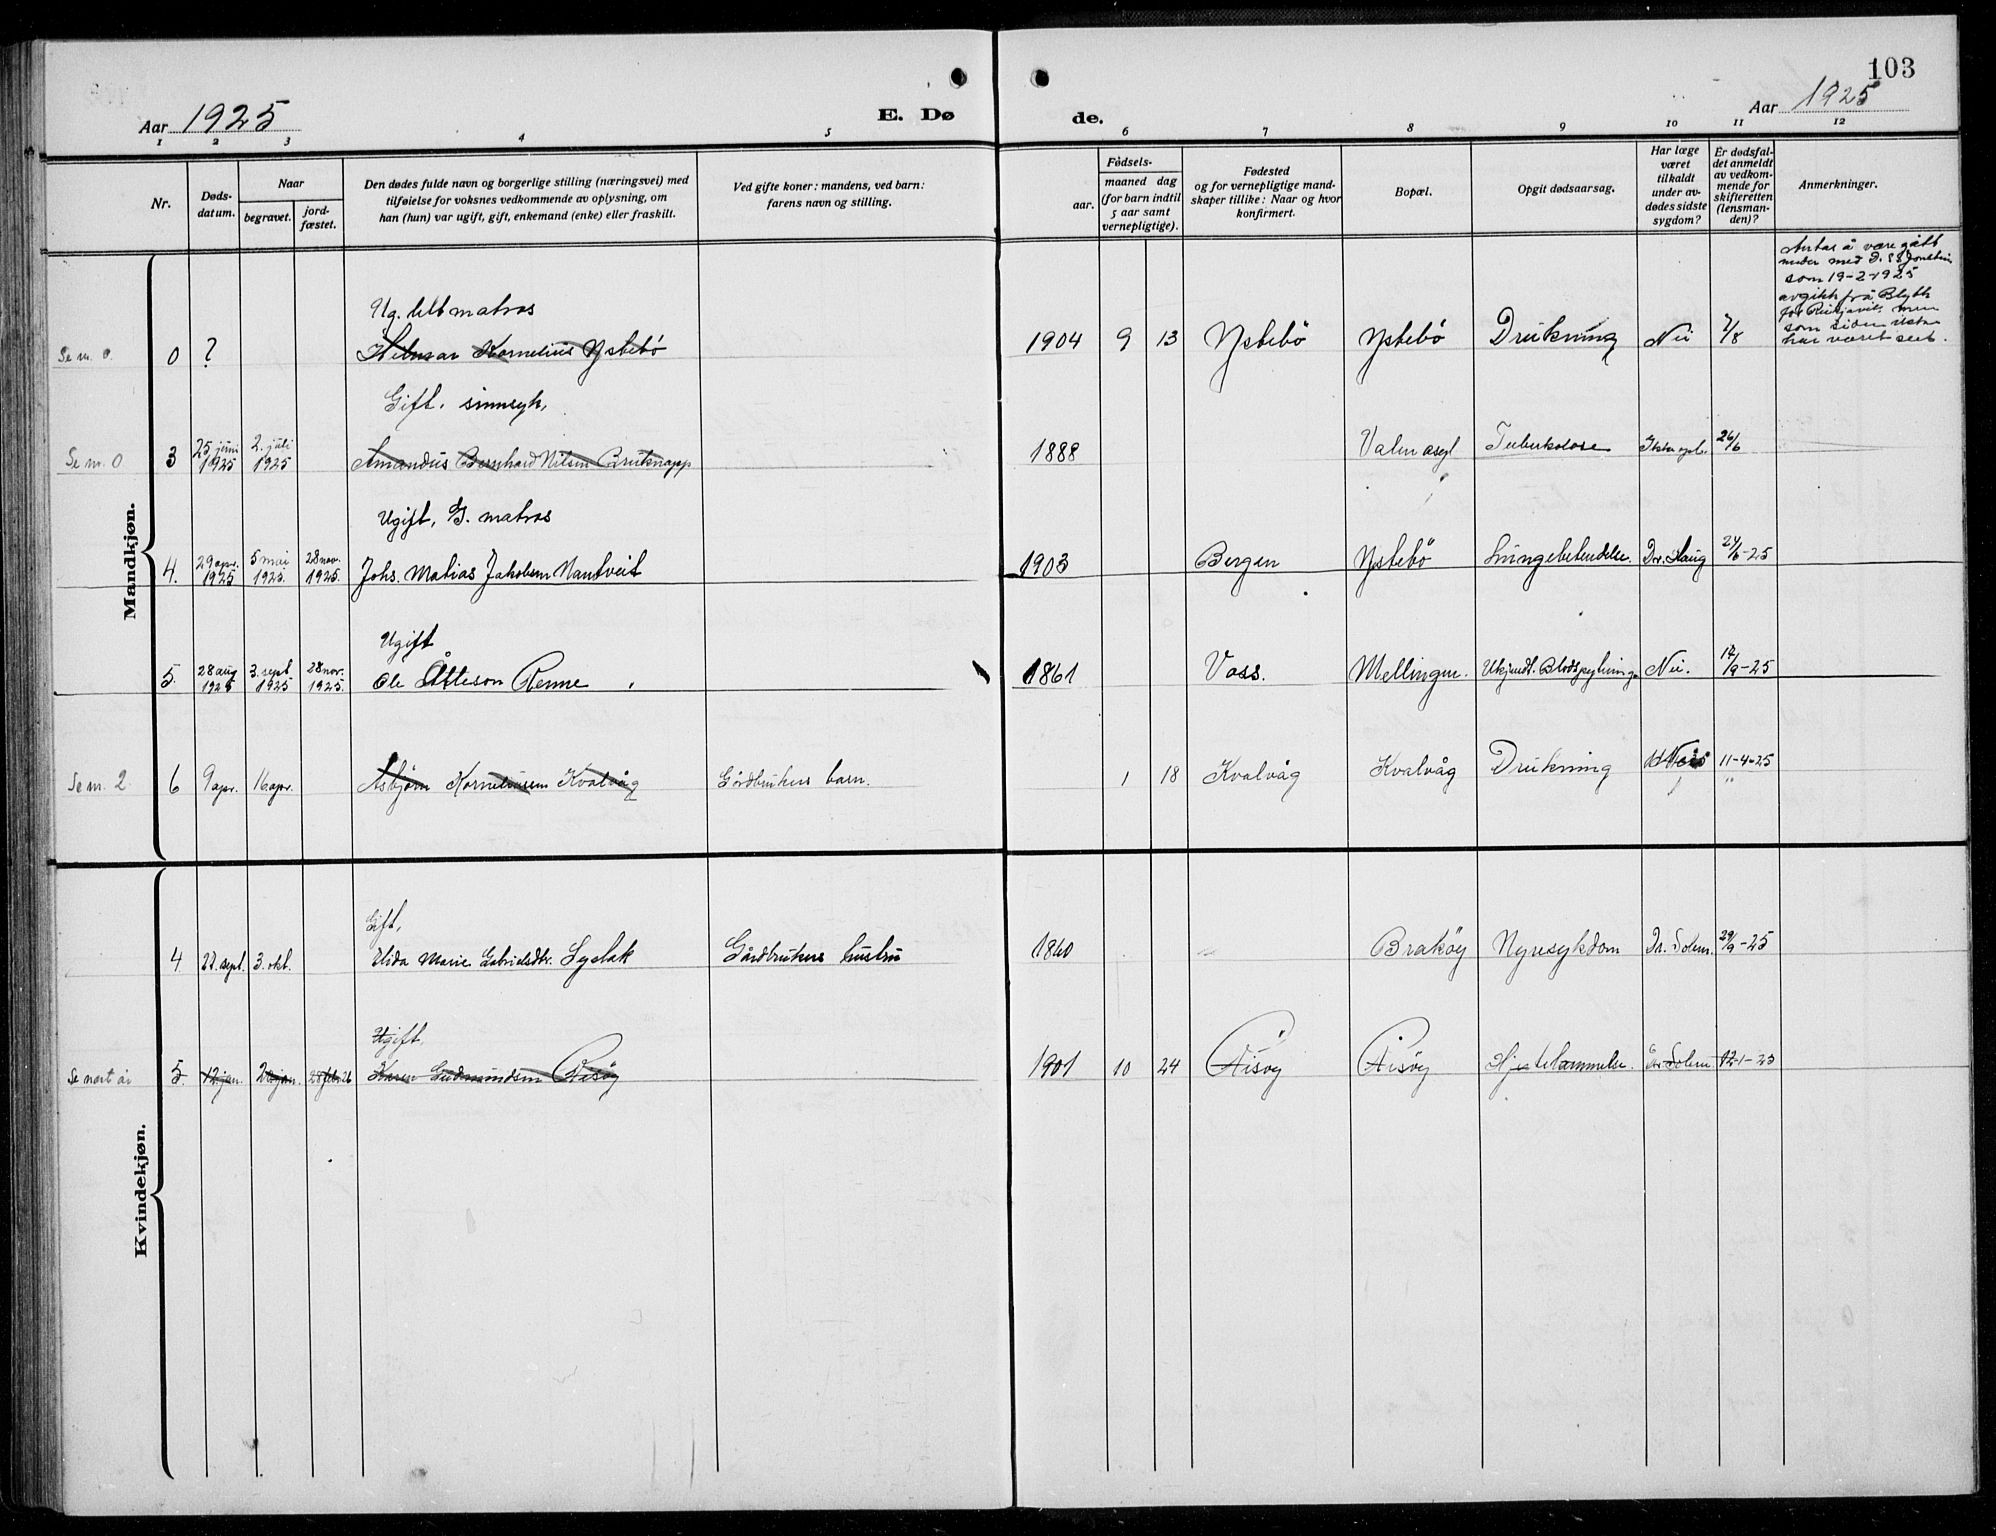 103
Aar 1925
E. Dø
de.
Aar 1925
1 2 3 4 5 6 7 8 9 10 11 12
Nr.
Døds-
datum.
Naar
begravet.
jord-
fæstet.
Den dødes fulde navn og borgerlige stilling (næringsvei) med
tilføielse for voksnes vedkommende av oplysning, om
han (hun) var ugift, gift, enkemand (enke) eller fraskilt.
Ved gifte koner: mandens, ved barn:
farens navn og stilling.
Fødsels-
aar.
maaned dag
(for barn indtil
5 aar samt
vernepligtige).
Fødested
og for vernepligtige mand-
skaper tillike: Naar og hvor
konfirmert.
Bopæl.
Opgit dødsaarsag.
Har læge
været
tilkaldt
under av-
dødes sidste
sygdom?
Er dødsfal-
det anmeldt
av vedkom-
mende for
skifteretten
(lensman-
den)?
Anmerkninger.
Mandkjøn.
Antas å være gått
med D. S/S
som 19-2-1925
avgikk frå Blyth
for men
som siden ikke
har været sett.
Ug. lettmatros
Se nr. 0 0 ? Hilmar Kornelius Ystebö 1904 9 13 Ystebö Ystebö Drukning Nei 7/8
Gift. sinnsyk,
Se nr. 0 3 25 juni 1925 2. juli 1925 Amandus Bernhard Nilsen Bruknapp 1888 Valen asyl Tuberkolose Ikke opl. 26/6
Ugift, G. matros
4. 29 apr. 1925 5 mai 1925 28 nov. 1925. Johs. Matias Jakobsen Nautveit 1903 Bergen Ystebö Lungebetendelse. Dr. Haug 24/6-25
Ugift
5. 28 aug 1925 3. sept 1925 28 nov. 1925. Ole Åtteson Renne 1861 Voss. Mellingen. Ukjendt. Blodspytning. Nei. 17/9-25
Se nr. 2 6 9 apr. 16 apr. Asbjørn Korneliusen Kvalvåg Gårdbrukers barn. 1 18 Kvalvåg Kvalvåg Drukning Nei 11-4-25
Kvindekjøn.
Gift,
4 27. sept. 3. okt. Elida Marie Gabrielsdtr. Lyslak Gårdbrukers hustru 1860 Brakøy Nyresykdom Dr. Solem. 29/9-25
Ugift,
Se næst år 5. 12 jan. 20 jan. 28 febr. 26 Karen Gudmundsen Risøy 1901 10 24 Risøy Risøy Hjertelammelse. Dr. Solem 12-1-25